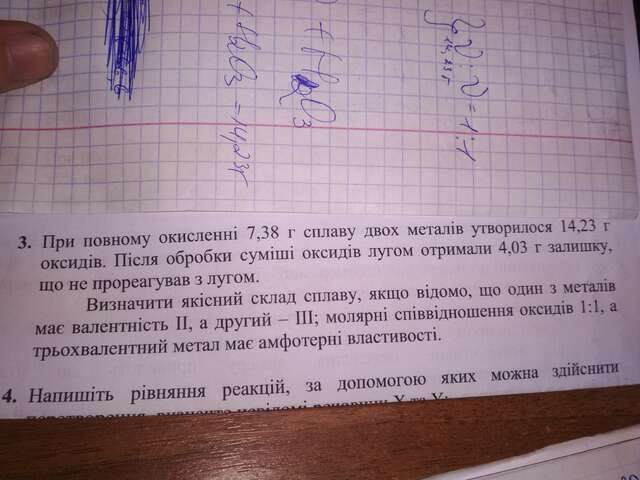 ν : ν = 1:1
14,23г
+ Me₂O₃
+ Me₂O₃ = 14,23г
3. При повному окисленні 7,38 г сплаву двох металів утворилося 14,23 г
оксидів. Після обробки суміші оксидів лугом отримали 4,03 г залишку,
що не прореагував з лугом.
Визначити якісний склад сплаву, якщо відомо, що один з металів
має валентність II, а другий – III; молярні співвідношення оксидів 1:1, а
трьохвалентний метал має амфотерні властивості.
4. Напишіть рівняння реакцій, за допомогою яких можна здійснити